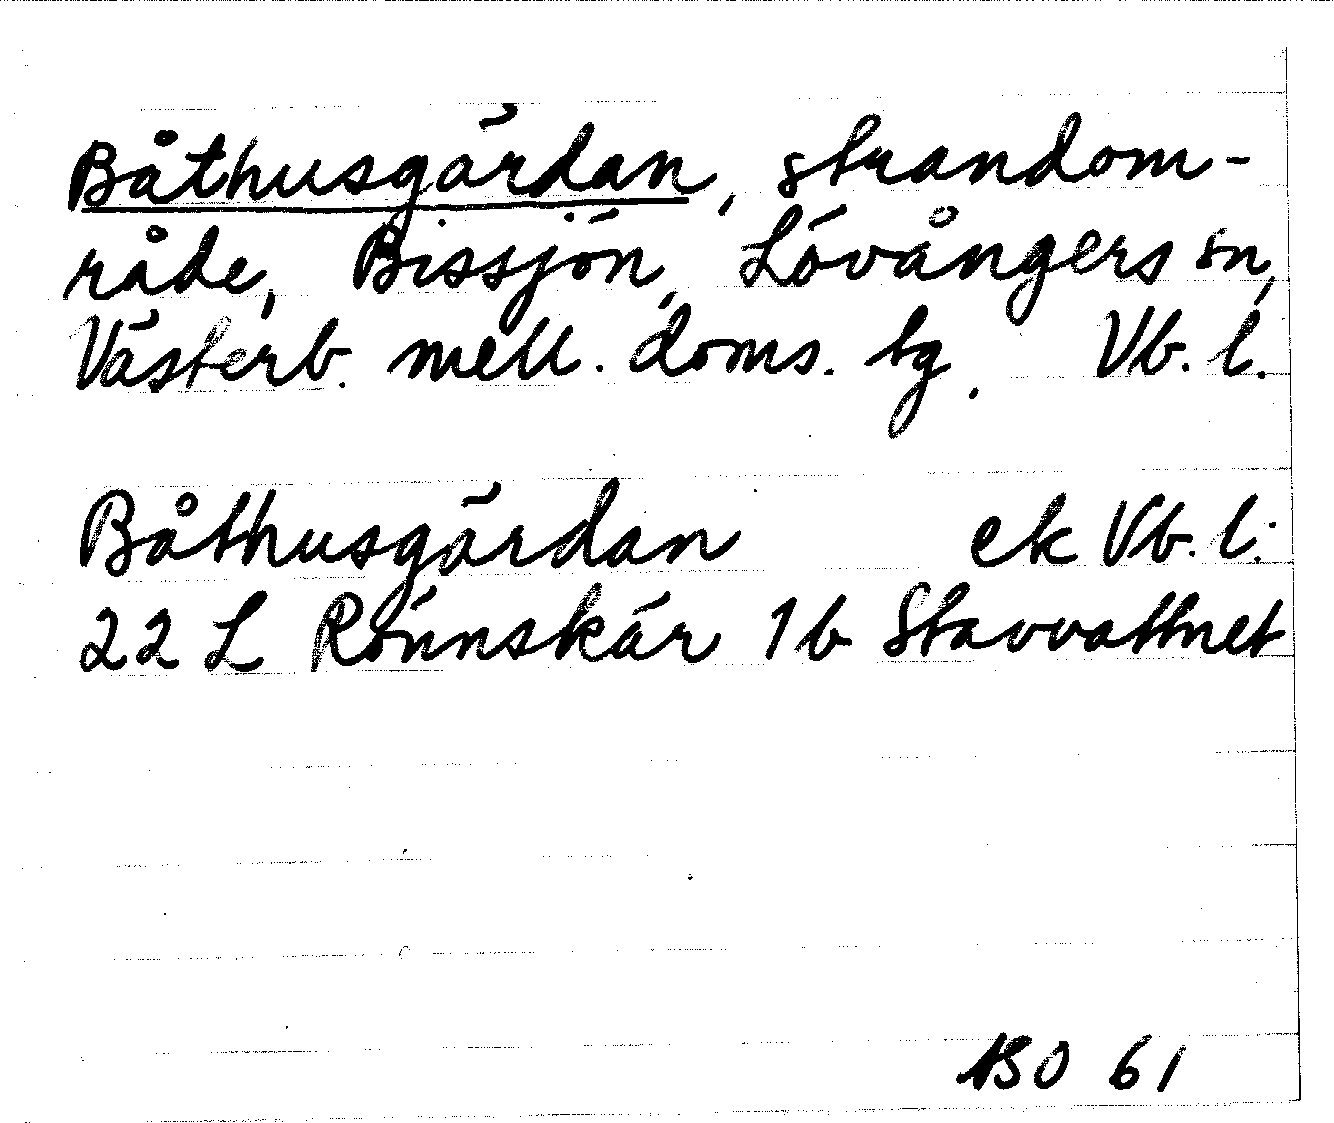 Båthusgärdan, strandom-
råde, Bissjön, Lövångers sn,
Västerb. mell. doms. tg. Vb. l.
Båthusgärdan ek Vb. l.
22 L Rönnskär 1b Stavvattnet
ABO 61